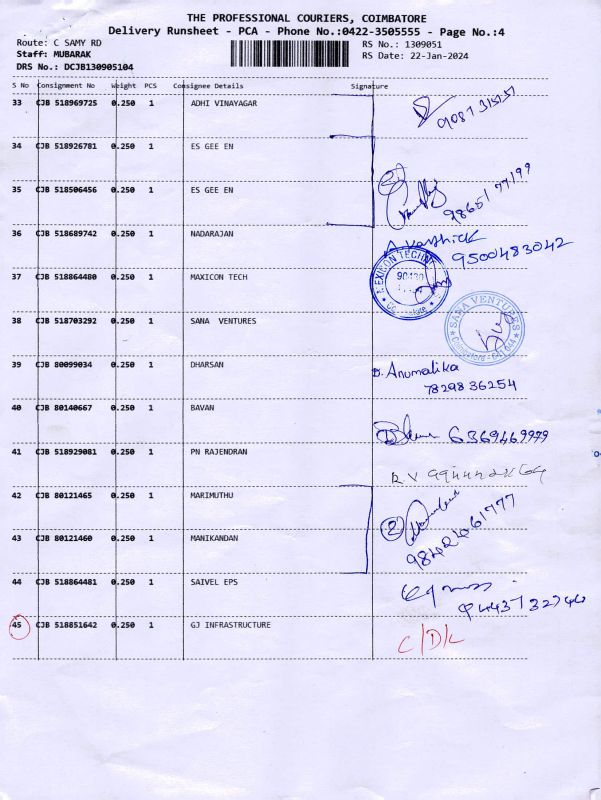 THE PROFESSIONAL COURIERS, COIMBATORE
Delivery Runsheet - PCA - Phone No.:0422-3505555 - Page No.:4
Route: C SAMY RD
RS No.: 1309051
Staff: MUBARAK
RS Date: 22-Jan-2024
DRS No.: DCJB130905104
S No Consignment No Weight PCS Consignee Details Signature
33 CJB 518969725 0.250 1 ADHI VINAYAGAR
34 CJB 518926781 0.250 1 ES GEE EN
35 CJB 518506456 0.250 1 ES GEE EN
9865177199
36 CJB 518689742 0.250 1 NADARAJAN
9500483042
37 CJB 518864480 0.250 1 MAXICON TECH
MEXICON TECHN
Coimbatore
38 CJB 518703292 0.250 1 SANA VENTURES
SANA VENTURES
Coimbatore - 641 044
39 CJB 80099034 0.250 1 DHARSAN
D. Anumalika
7829836254
40 CJB 80140667 0.250 1 BAVAN
6369469979
41 CJB 518929081 0.250 1 PN RAJENDRAN
42 CJB 80121465 0.250 1 MARIMUTHU
2
43 CJB 80121460 0.250 1 MANIKANDAN
44 CJB 518864481 0.250 1 SAIVEL EPS
45 CJB 518851642 0.250 1 GJ INFRASTRUCTURE
C/D/L